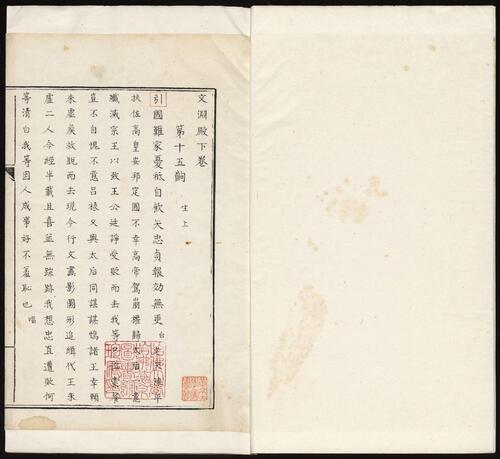 文淵殿下卷
第十五齣
生上
引國難家憂祗自歎矢忠貞報効無更台老夫陳平
扶佐高皇安邦定國不幸高帝駕崩權歸太后意
殲滅宗王以致王公廷諍受敗而去我等
豈不自愧不意呂祿又與太后同謀謀鴆諸王幸賴
朱虛侯放脫而去現今行文畵影圖形追緝代王朱
盧二人今經半載且喜並無踪跡我想忠直遭敗何
等清白我等因人成事好不羞恥也唱